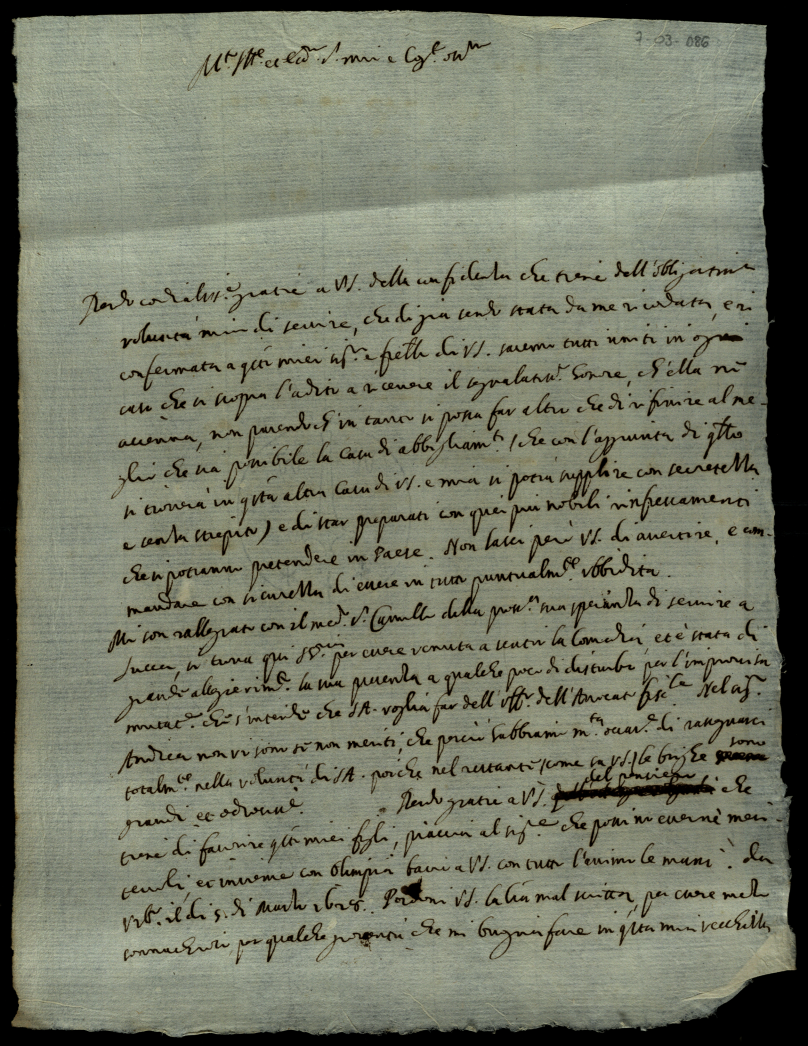 7-03-086
M.to Ill.re et Ecc.te S.r mio e
Rendo cordialiss.e gratie a VS. della confidenza che tiene dell'obligatiss.a
volontà mia di servire, che di già sendo stata da me ricordata, e ri
confermata a q.sti miei sig.ri e fr̃elli di VS. saremo tutti uniti in ogni
caso che si scopra l'adito a ricevere il segnalatiss.o honore, ch'ella ne
accenna, non parendo ch'in tanto si possa far altro che di rifinire al me-
glio che sia possibile la casa di abbigliam.ti (che con l'aggiunta di q.llo
si troverà in q.sta altra casa di VS. e mia si potrà supplire con secretezza
e senza strepito) e di star preparati con quei più nobili rinfrescamenti
che si potranno pretendere in Paese. Non lasci però VS. di avertire, e com-
mandare con sicurezza di essere in tutto puntualm.te ubbidita.
Mi son rallegrato con il med.o S.r Camillo della sua speranza di servire a
si trova qui per esser venuta a sentir la Comedia et è stata di
grande a qualche poco di disturbo per l'improvisa
mutat.e che s'intende che SA. voglia far dell'Off.o dell'Avocato fisc.le Nel sig.r
Andrea non vi sono se non meriti, che perciò habbiamo m.ta di rasegnarci
totalm.te nella volontà di SA. poiche nel restante (come sa VS.) le brighe sono
grandi et odiose. Rendo gratie a VS. del pensiero che
tiene di favorire q.sti miei figli, piaccia al sig.re che possino esserne meri-
tevoli, et insieme con Olimpia bacio a VS. con tutto l'animo le mani. Da
Urb.o il dì 5. di Marzo Perdoni VS. la lr̃a mal scritta, per esser
per qualche che mi bisogna fare in q.sta mia vecchiezza